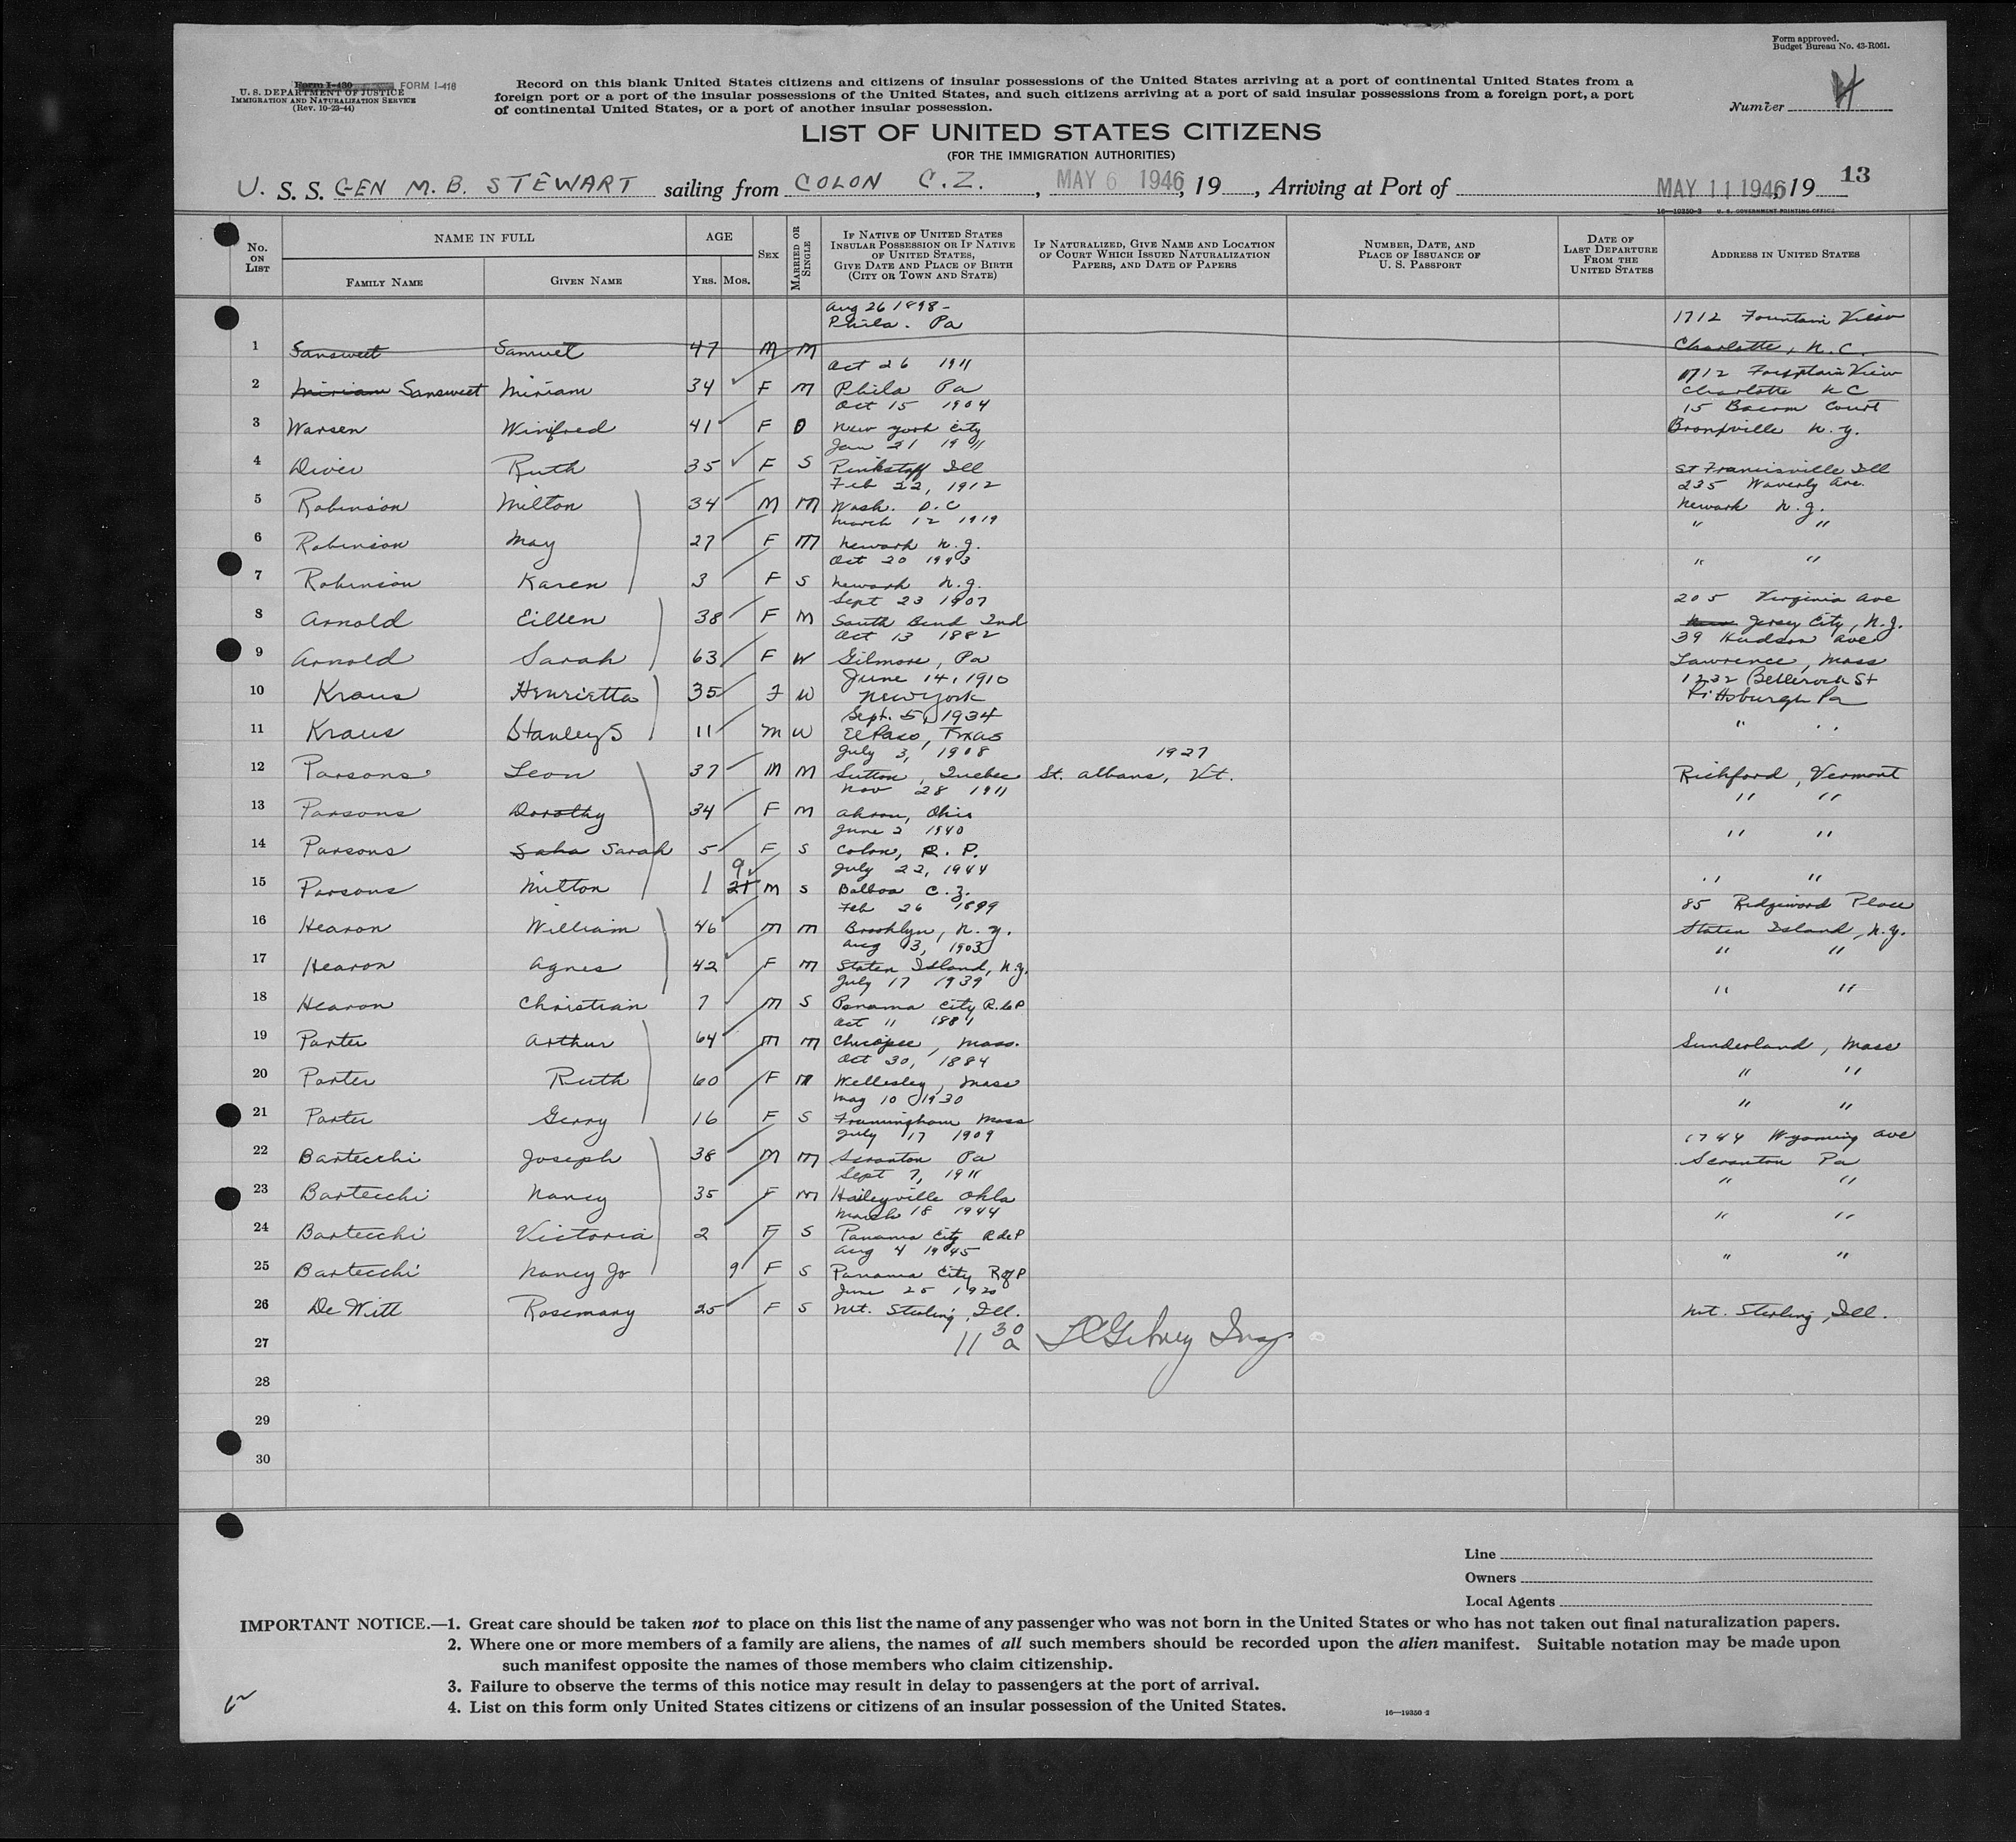 Form approved.
Budget Bureau No. 43-R061.
Form I-430 FORM I-416
U. S. DEPARTMENT OF JUSTICE
IMMIGRATION AND NATURALIZATION SERVICE
(Rev. 10-23-44)
Record on this blank United States citizens and citizens of insular possessions of the United States arriving at a port of continental United States from a
foreign port or a port of the insular possessions of the United States, and such citizens arriving at a port of said insular possessions from a foreign port, a port
of continental United States, or a port of another insular possession.
Number
LIST OF UNITED STATES CITIZENS
(FOR THE IMMIGRATION AUTHORITIES)
U. S. S. GEN M. B. STEWART sailing from COLON C.Z. , MAY 6 1946, 19 , Arriving at Port of MAY 11 1946, 19 13
16—19350-2 U. S. GOVERNMENT PRINTING OFFICE
No. ON LIST
NAME IN FULL
FAMILY NAME GIVEN NAME
AGE
YRS. MOS.
SEX
MARRIED OR SINGLE
IF NATIVE OF UNITED STATES INSULAR POSSESSION OR IF NATIVE OF UNITED STATES, GIVE DATE AND PLACE OF BIRTH (CITY OR TOWN AND STATE)
IF NATURALIZED, GIVE NAME AND LOCATION OF COURT WHICH ISSUED NATURALIZATION PAPERS, AND DATE OF PAPERS
NUMBER, DATE, AND PLACE OF ISSUANCE OF U. S. PASSPORT
DATE OF LAST DEPARTURE FROM THE UNITED STATES
ADDRESS IN UNITED STATES
Aug 26 1898- 1712 Fountain View
Phila. Pa
1 Sansweet Samuel 47 M M Charlotte, N.C.
Oct 26 1911 1712 Fountain View
2 Miriam Sansweet Miriam 34 F M Phila Pa Charlotte NC
Oct 15 1904 15 Bacon Court
3 Warsen Winifred 41 F D New York City Bronxville N.Y.
Jan 21 1911
4 Diver Ruth 35 F S Pinkstaff Ill St Francisville Ill
Feb 22, 1912 235 Waverly Ave.
5 Robinson Milton 34 M M Wash. D.C Newark N.J.
March 12 1919
6 Robinson May 27 F M Newark N.J. " "
Oct 20 1943
7 Robinson Karen 3 F S Newark N.J. " "
Sept 23 1907 205 Virginia Ave
8 Arnold Eileen 38 F M South Bend Ind Jersey City, N.J.
Oct 13 1882 39 Hudson Ave
9 Arnold Sarah 63 F W Gilmore, Pa Lawrence, Mass
June 14, 1910 1232 Bellerock St
10 Kraus Henrietta 35 F W New York Pittsburgh Pa
Sept. 5, 1934
11 Kraus Stanley S 11 M W El Paso, Texas " "
July 3, 1908 1927
12 Parsons Leon 37 M M Sutton, Quebec St. Albans, Vt. Richford, Vermont
Nov 28 1911
13 Parsons Dorothy 34 F M Akron, Ohio " "
June 2 1940
14 Parsons Saha Sarah 5 F S Colon, R. P. " "
July 22, 1944
15 Parsons Milton 1 21 9 M S Balboa C.Z. " "
Feb 26 1899 85 Ridgewood Place
16 Hearon William 46 M M Brooklyn, N.Y. Staten Island, N.Y.
Aug 3, 1903
17 Hearon Agnes 42 F M Staten Island, N.Y. " "
July 17 1939
18 Hearon Christian 7 M S Panama City R.deP " "
Oct 11 1881
19 Porter Arthur 64 M M Chicopee, Mass. Sunderland, Mass
Oct 30, 1884
20 Porter Ruth 60 F M Wellesley, Mass " "
May 10 1930
21 Porter Gerry 16 F S Framingham Mass " "
July 17 1909 1744 Wyoming Ave
22 Bartecchi Joseph 38 M M Scranton Pa Scranton Pa
Sept 7, 1911
23 Bartecchi Nancy 35 F M Haileyville Okla " "
March 18 1944
24 Bartecchi Victoria 2 F S Panama City R de P " "
Aug 4 1945
25 Bartecchi Nancy Jo 9 F S Panama City R of P " "
June 25 1920
26 De Witt Rosemary 25 F S Mt. Sterling, Ill. Mt. Sterling, Ill.
27 11 30 a
28
29
30
Line
Owners
Local Agents
IMPORTANT NOTICE.—1. Great care should be taken not to place on this list the name of any passenger who was not born in the United States or who has not taken out final naturalization papers.
2. Where one or more members of a family are aliens, the names of all such members should be recorded upon the alien manifest. Suitable notation may be made upon
such manifest opposite the names of those members who claim citizenship.
3. Failure to observe the terms of this notice may result in delay to passengers at the port of arrival.
4. List on this form only United States citizens or citizens of an insular possession of the United States.
16—19350-2